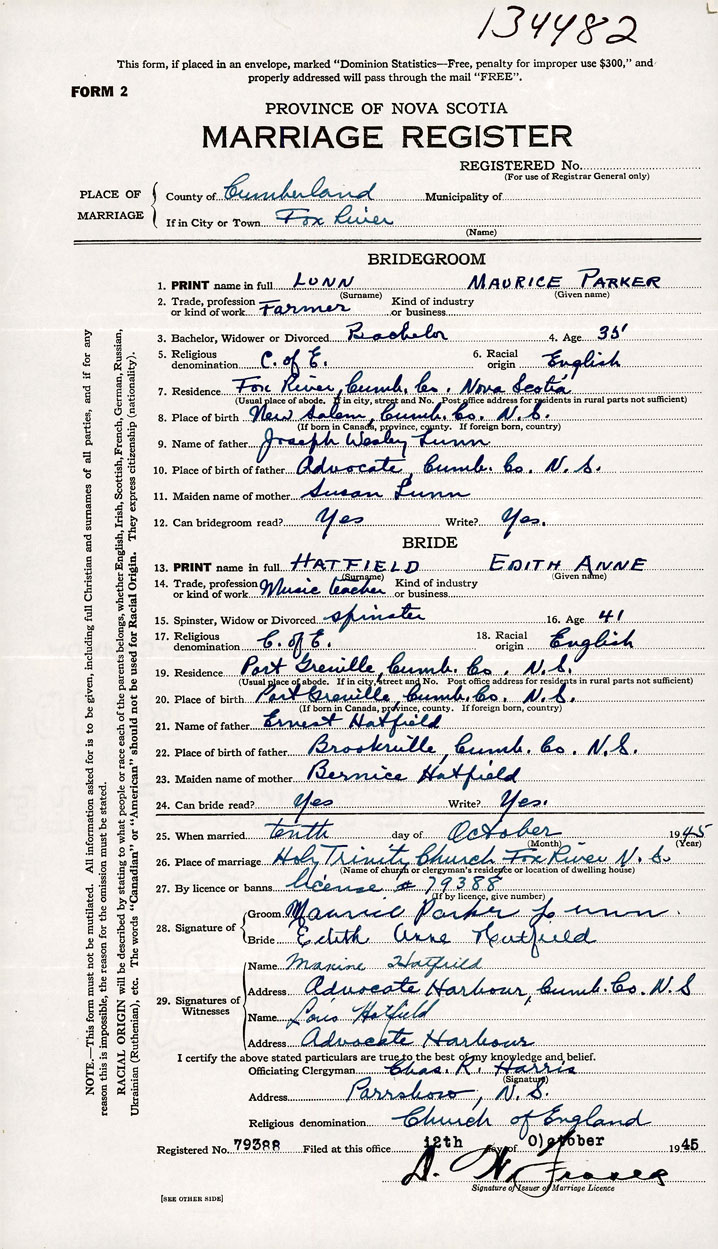 134482
This form, if placed in an envelope, marked "Dominion Statistics—Free, penalty for improper use $300," and
properly addressed will pass through the mail "FREE".
FORM 2
PROVINCE OF NOVA SCOTIA
MARRIAGE REGISTER
REGISTERED No.
(For use of Registrar General only)
PLACE OF MARRIAGE
County of Cumberland Municipality of
If in City or Town Fox River
(Name)
BRIDEGROOM
1. PRINT name in full LUNN MAURICE PARKER
(Surname) (Given name)
2. Trade, profession or kind of work Farmer Kind of industry or business
3. Bachelor, Widower or Divorced Bachelor 4. Age 35
5. Religious denomination C. of E. 6. Racial origin English
7. Residence Fox River, Cumb. Co. Nova Scotia
(Usual place of abode. If in city, street and No. Post office address for residents in rural parts not sufficient)
8. Place of birth New Salem, Cumb. Co. N.S.
(If born in Canada, province, county. If foreign born, country)
9. Name of father Joseph Wesley Lunn
10. Place of birth of father Advocate, Cumb. Co. N.S.
11. Maiden name of mother Susan Lunn
12. Can bridegroom read? Yes Write? Yes.
BRIDE
13. PRINT name in full HATFIELD EDITH ANNE
(Surname) (Given name)
14. Trade, profession or kind of work Music teacher Kind of industry or business
15. Spinster, Widow or Divorced spinster 16. Age 41
17. Religious denomination C. of E. 18. Racial origin English
19. Residence Port Greville, Cumb. Co. N.S.
(Usual place of abode. If in city, street and No. Post office address for residents in rural parts not sufficient)
20. Place of birth Port Greville, Cumb. Co. N.S.
(If born in Canada, province, county. If foreign born, country)
21. Name of father Ernest Hatfield
22. Place of birth of father Brookville, Cumb. Co. N.S.
23. Maiden name of mother Bernice Hatfield
24. Can bride read? Yes Write? Yes.
25. When married tenth day of October 1945
(Month) (Year)
26. Place of marriage Holy Trinity Church Fox River N.S.
(Name of church or clergyman's residence or location of dwelling house)
27. By licence or banns license # 79388
(If by licence, give number)
28. Signature of
Groom Maurice Parker Lunn.
Bride Edith Anne Hatfield
29. Signatures of Witnesses
Name Maxine Hatfield
Address Advocate Harbour, Cumb. Co. N.S
Name Lois Hatfield
Address Advocate Harbour
I certify the above stated particulars are true to the best of my knowledge and belief.
Officiating Clergyman Chas. R. Harris
(Signature)
Address Parrsboro, N.S.
Religious denomination Church of England
Registered No. 79388 Filed at this office 12th day of October 1945
D. W. Fraser
Signature of Issuer of Marriage Licence
[SEE OTHER SIDE]
NOTE.—This form must not be mutilated. All information asked for is to be given, including full Christian and surnames of all parties, and if for any
reason this is impossible, the reason for the omission must be stated.
RACIAL ORIGIN will be described by stating to what people or race each of the parents belongs, whether English, Irish, Scottish, French, German, Russian,
Ukrainian (Ruthenian), etc. The words "Canadian" or "American" should not be used for Racial Origin. They express citizenship (nationality).